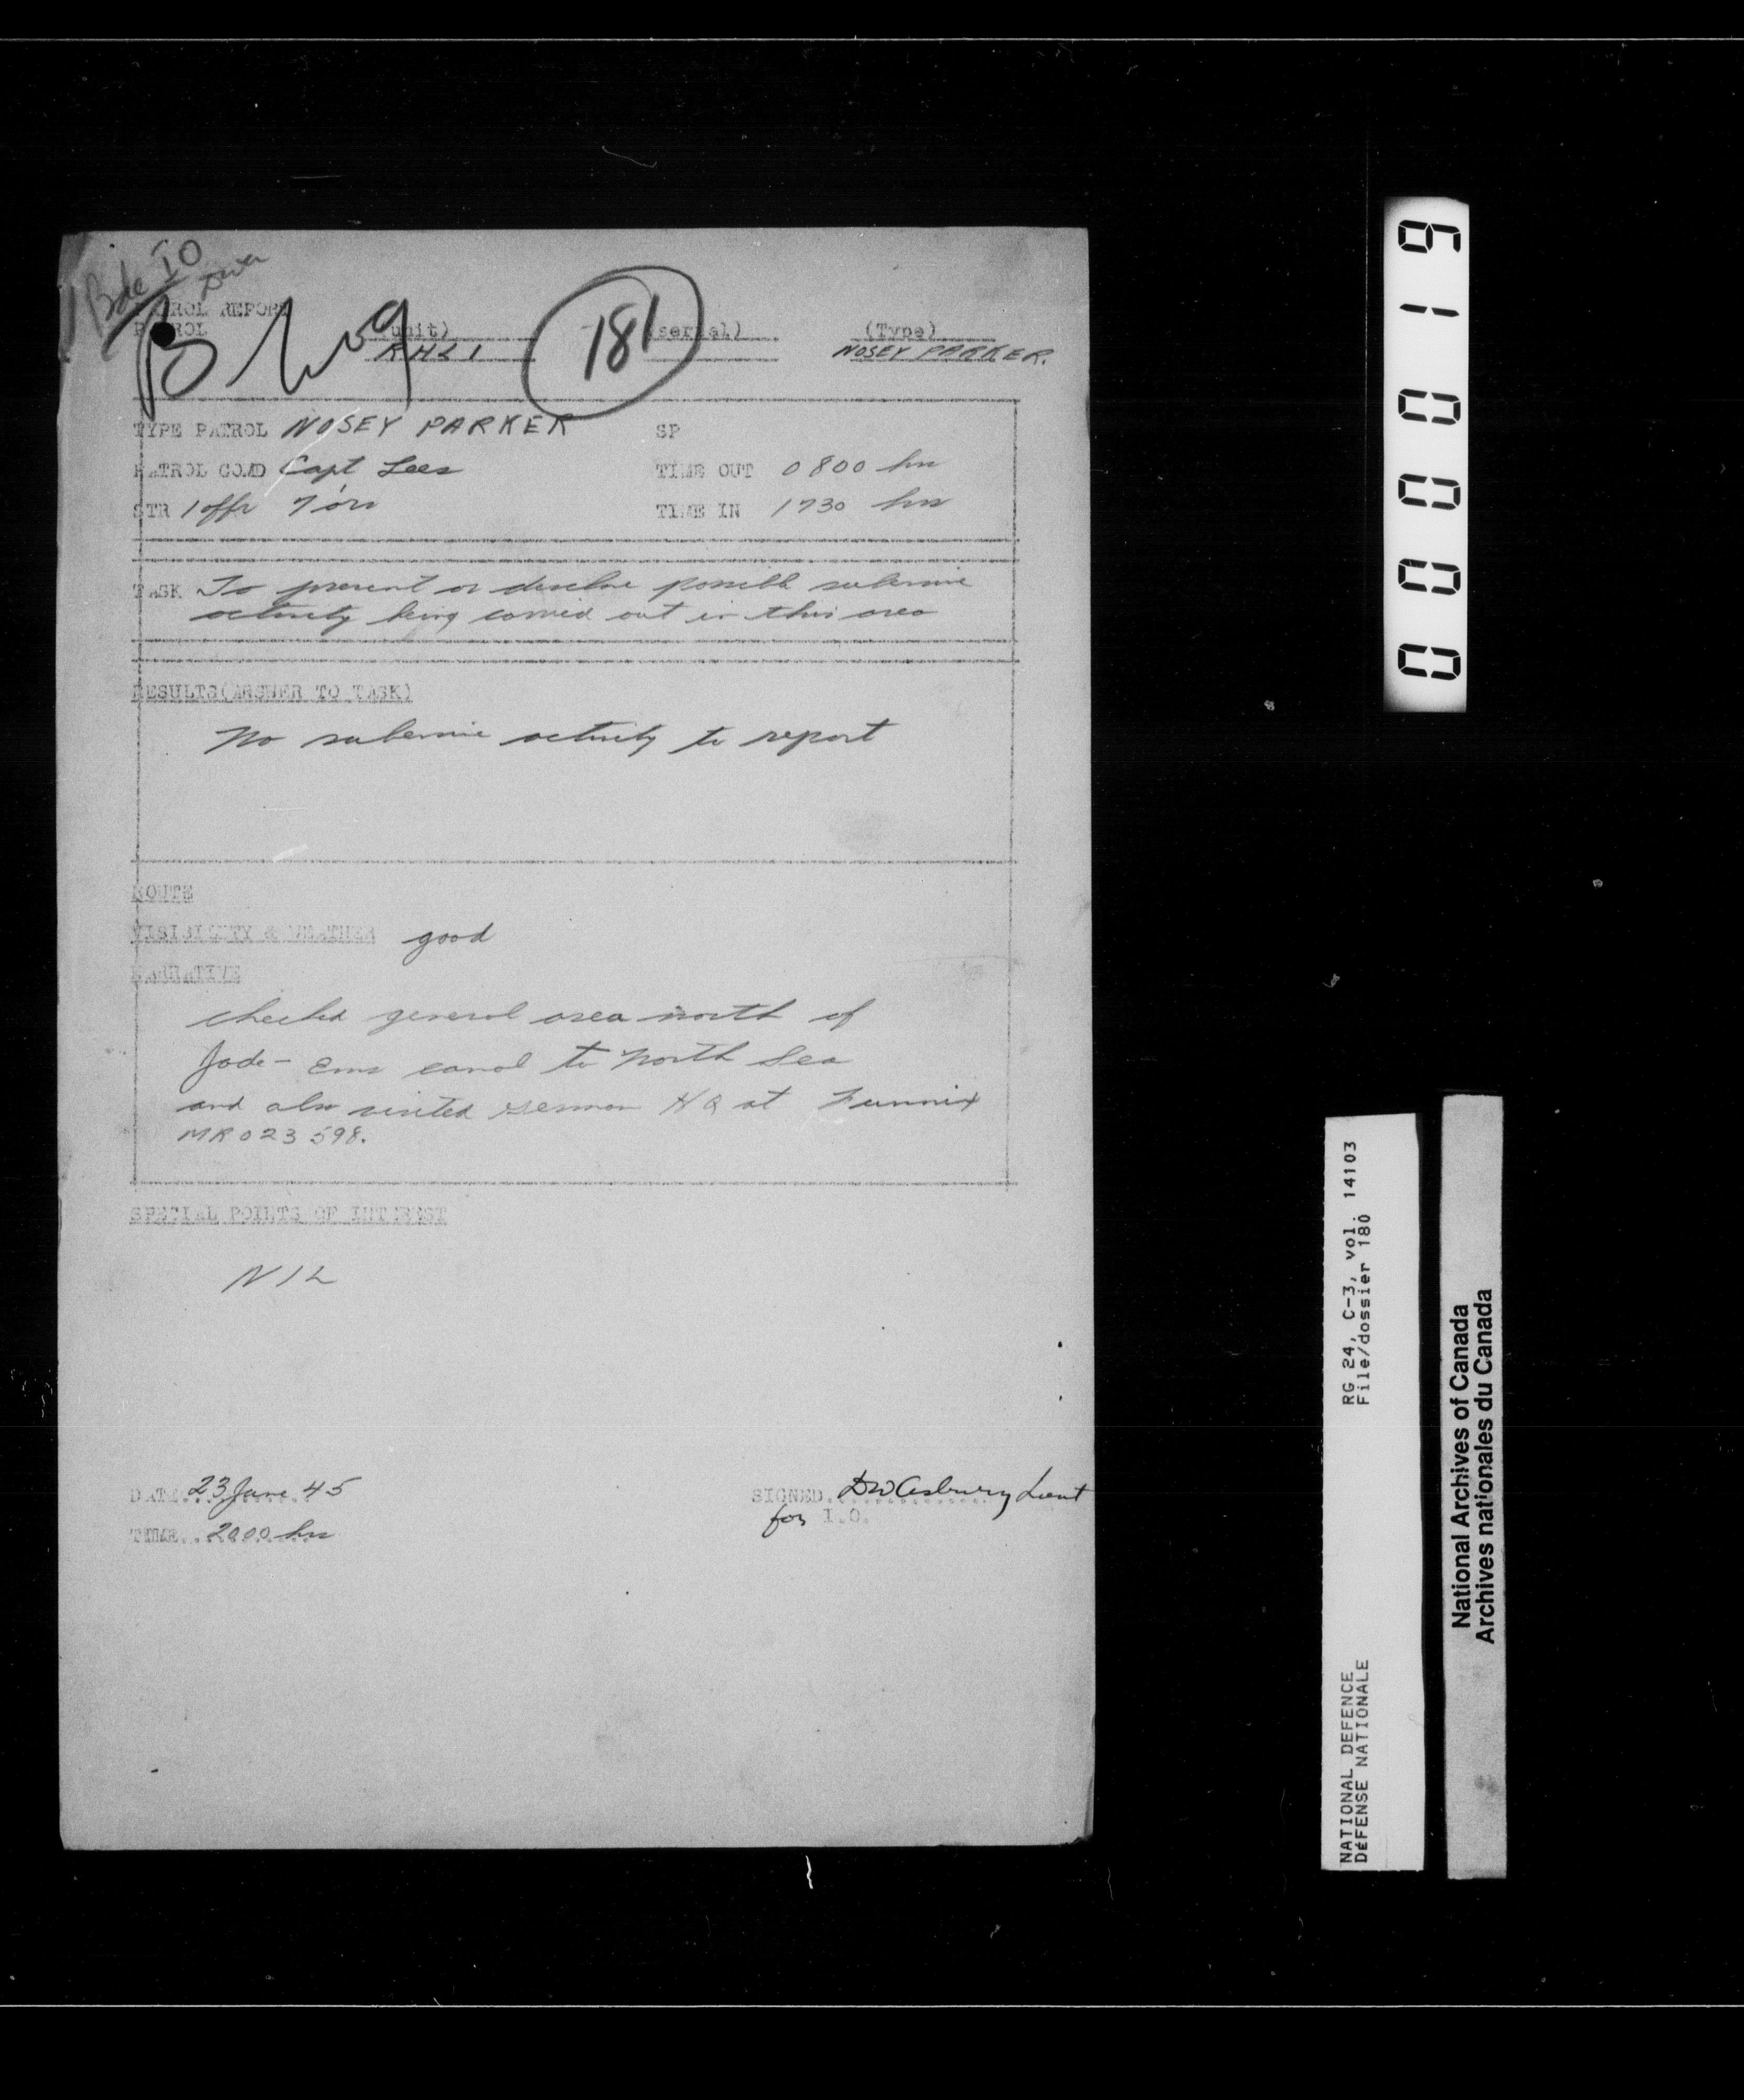 Bde IO
PATROL REPORT
PATROL (unit) (serial) (Type)
RHLI 181 NOSEY PARKER.
TYPE PATROL NOSEY PARKER SP
PATROL COMD Capt Lees TIME OUT 0800 hrs
STR 1 offr 7 ors TIME IN 1730 hrs
TASK To prevent or disclose possible subversive
activity being carried out in this area
RESULTS(ANSWER TO TASK)
No subversive activity to report
ROUTE
VISIBILITY & WEATHER good
NARRATIVE
checked general area north of
Jade - Ems canal to North Sea
and also visited German HQ at Funnix
MR 023 598.
SPECIAL POINTS OF INTEREST
NIL
DATE 23 June 45 SIGNED DW Asbury Lieut
for I.O.
TIME 2000 hrs
000019
RG 24, C-3, vol. 14103
File/dossier 180
NATIONAL DEFENCE
DéFENSE NATIONALE
National Archives of Canada
Archives nationales du Canada